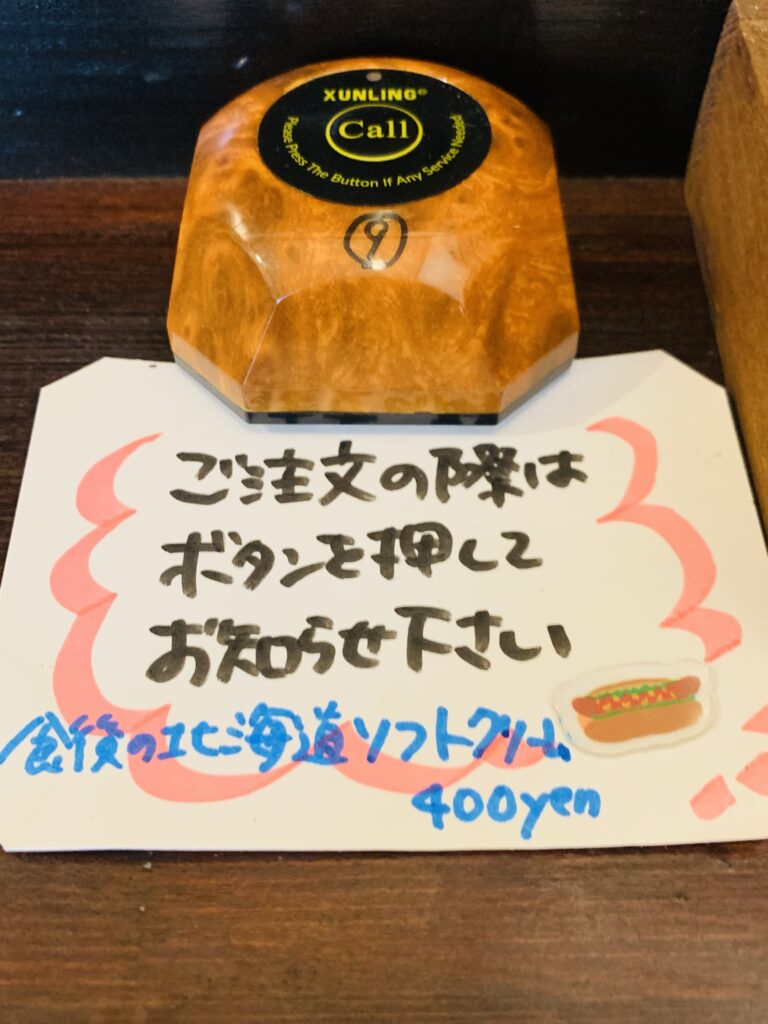 XUNLING®
Call
Please Press The Button If Any Service Needed
⑨
ご注文の際は
ボタンを押して
お知らせ下さい
食後の北海道ソフトクリーム
400yen